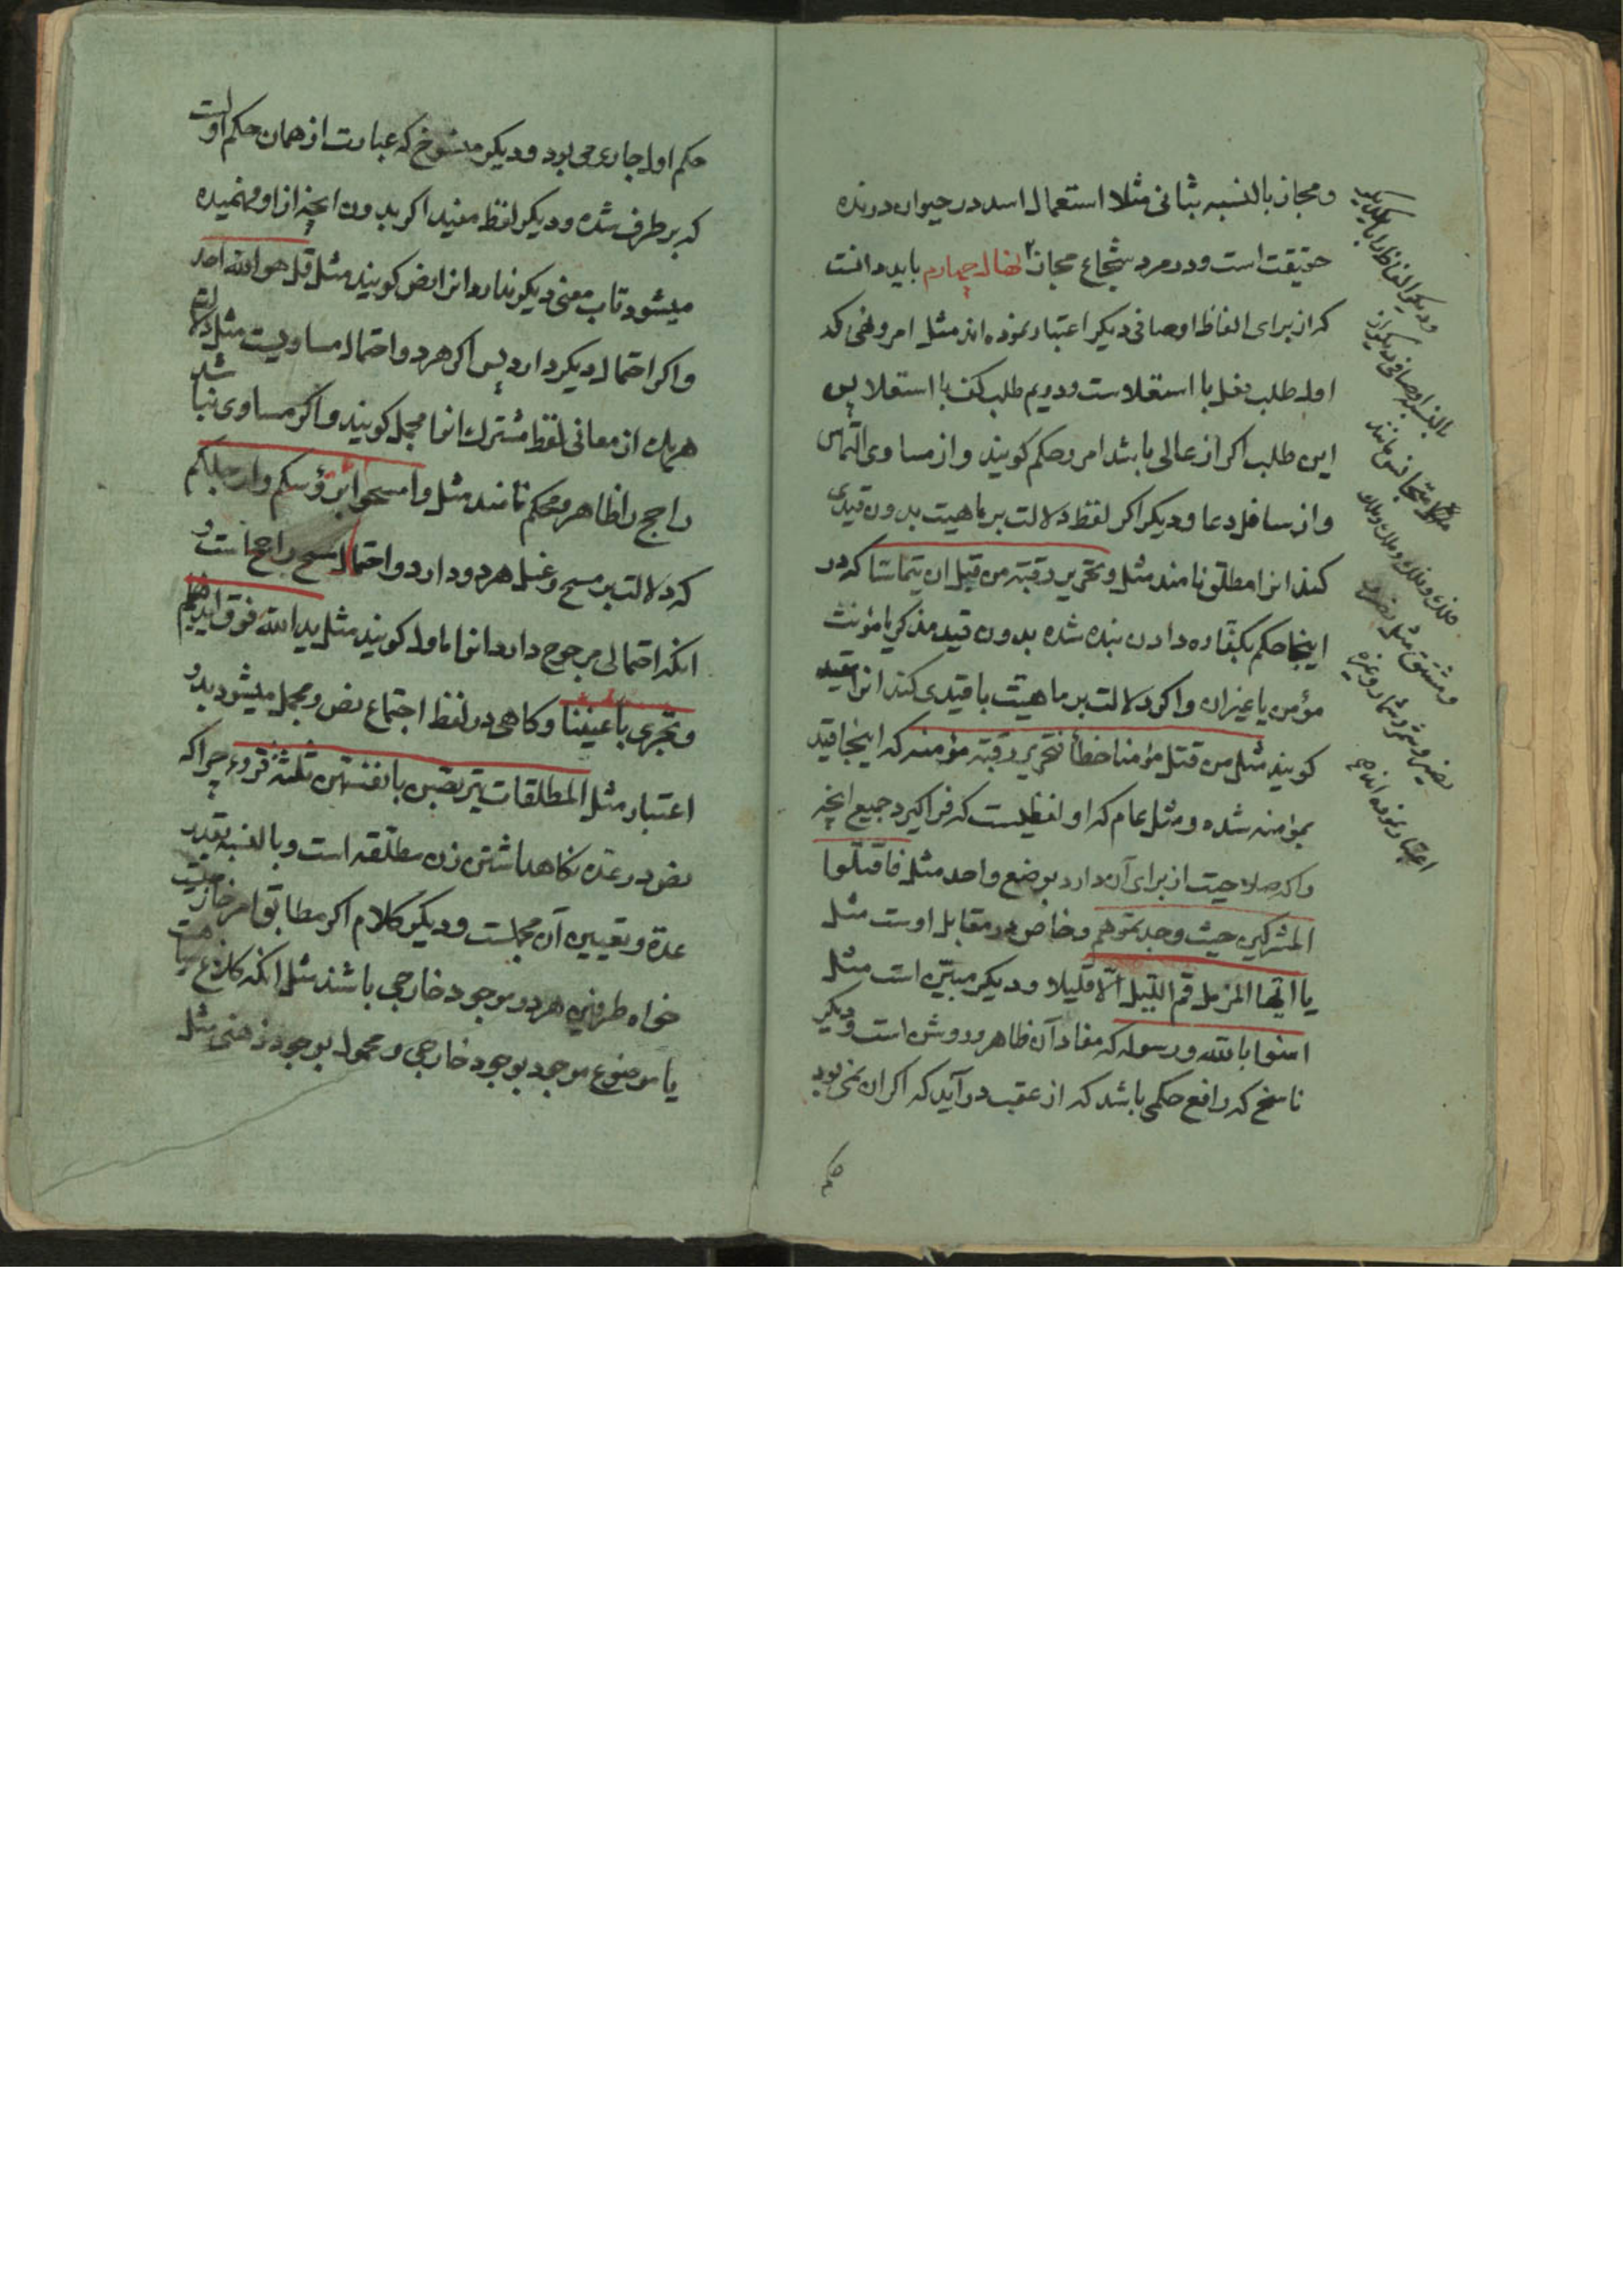 ومجاز بالنسبه بثانی مثلا استعمال اسد در حیوان درنده
حقیقت است ودر مرد شجاع مجاز نهال چهارم باید دانست
که از برای الفاظ اوصافی دیگر اعتبار نموده اند مثل امر ونهی که
اول طلب فعل با استعلاست ودویم طلب کف با استعلا پس
این طلب اکر از عالی باشد امر وحکم کویند واز مساوی التماس
واز سافل دعا ودیکر اکر لفظ دلالت بر ماهیت بدون قیدی
کند انرا مطلق نامند مثل وتحریر رقبة من قبل ان یتماسا که در
اینجا حکم بکفاره دادن بنده شده بدون قید مذکر یا مؤنث
مؤمن یا غیر ان واکر دلالت بر ماهیت با قیدی کند انرا مقید
کویند مثل من قتل مؤمنا خطأ فتحریر رقبة مؤمنه که اینجا قید
بمؤمنه شده ومثل عام که او لفظیست که فراکیرد جمیع انچه
را که صلاحیت از برای آن دارد بوضع واحد مثل فاقتلوا
المشرکین حیث وجدتموهم وخاص در مقابل اوست مثل
یا ایها المزمل قم اللیل الا قلیلا ودیکر مبین است مثل
امنوا بالله ورسوله که مفاد آن ظاهر وروشن است ودیکر
ناسخ که رافع حکمی باشد که از عقب در آید که اکر ان نمی بود
حکم
ودیکر الفاظ را با یکدیگر
بالنسبه اوصافی دیکر از
متجانس مانند
فلک وفلک وملک وملک
ومشتق مثل نصر
نصیر وثمر وثمار وغیره
اعتبار نموده اند
حکم اول جاری می بود ودیکر منسوخ که عبارت از همان حکم اولست
که بر طرف شده ودیکر لفظ مفید اکر بدون انچه از او فهمیده
میشود تاب معنی دیکر ندارد انرا نص کویند مثل قل هو الله احد
واکر احتمال دیکر دارد پس اکر هر دو احتمال مساویست مثل دلالت
هریک از معانی لفظ مشترک انرا مجمل کویند واکر مساوی نباشد
راجح را ظاهر ومحکم نامند مثل وامسحوا برؤسکم وارجلکم
که دلالت بر مسح وغسل هر دو دارد واحتمال مسح راجح است و
انکه احتمالی مرجوح دارد انرا ماول کویند مثل ید الله فوق ایدیهم
وتجری باعیننا وکاهی در لفظ اجتماع نص ومجمل میشود بدو
اعتبار مثل المطلقات یتربصن بانفسهن ثلثة قروء چرا که
نص در عده نکاهداشتن زن مطلقه است وبالنسبه بقدر
عده وتعیین آن مجملست ودیکر کلام اکر مطابق امر خارجیست
خواه طرفین هر دو موجود خارجی باشند مثل انکه کلاغ سیاهست
یا موضوع موجود بوجود خارجی ومحمول بوجود ذهنی مثل